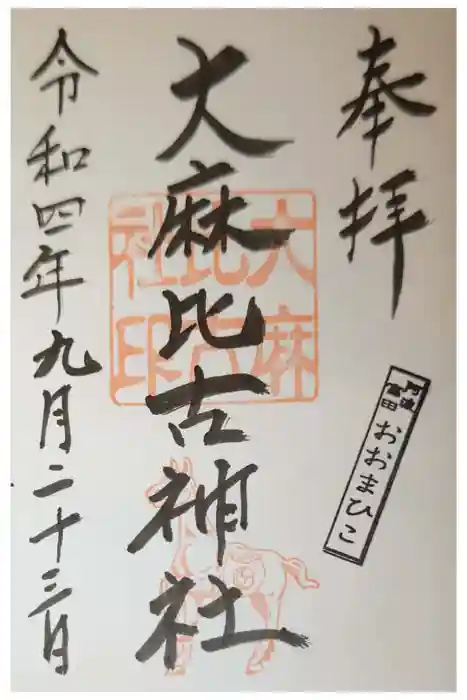 奉拝
阿波富田
おおまひこ
大麻比古神社
大麻
比古
社印
令和四年九月二十三日